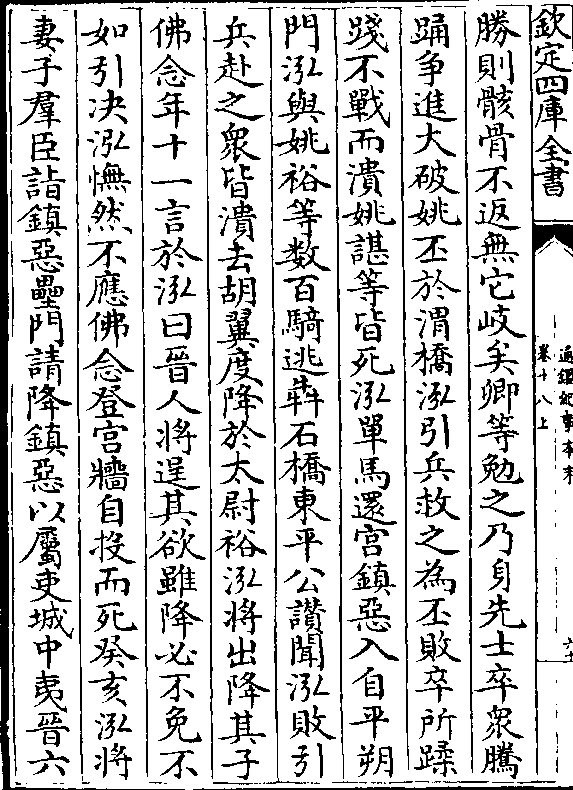 欽定四庫全書
通鑑紀事本末
卷十八上
六十
勝則骸骨不返無它岐矣卿等勉之乃身先士卒衆騰
踊争進大破姚丕於渭橋泓引兵救之為丕敗卒所蹂
踐不戰而潰姚諶等皆死泓單馬還宫鎮惡入自平朔
門泓與姚裕等數百騎逃犇石橋東平公讚聞泓敗引
兵赴之衆皆潰去胡翼度降於太尉裕泓將出降其子
佛念年十一言於泓曰晉人將逞其欲雖降必不免不
如引决泓憮然不應佛念登宫牆自投而死癸亥泓將
妻子羣臣詣鎮惡壘門請降鎮惡以屬吏城中夷晉六